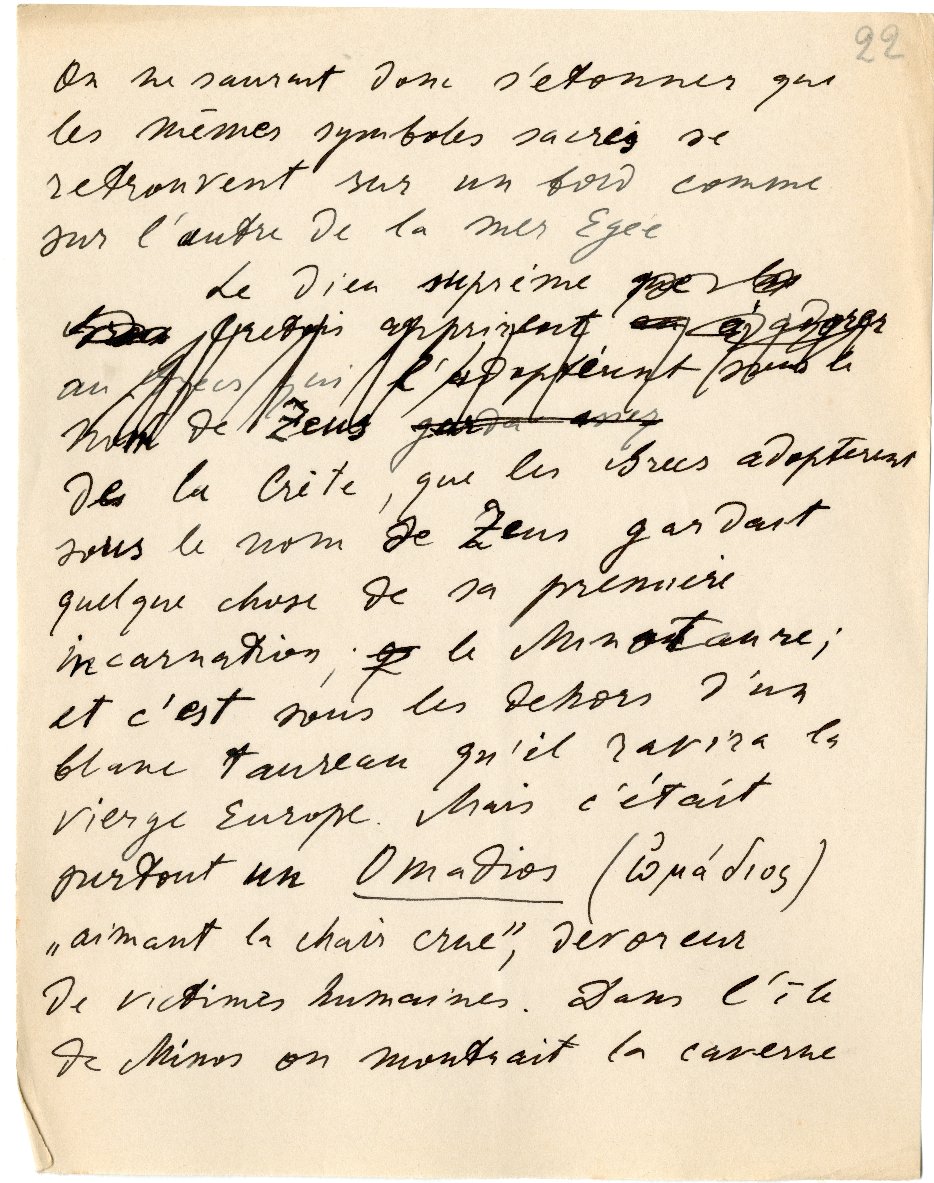 22
On ne saurait donc s'étonner que
les mêmes symboles sacrés se
retrouvent sur un bord comme
sur l'autre de la mer Egée
Le Dieu suprême que les
Grecs Crétois apprirent à adorer
au Grecs qui l'adoptèrent sous le
nom de Zeus garda assez
de la Crête, que les Grecs adoptèrent
sous le nom de Zeus gardait
quelque chose de sa première
incarnation, le Minotaure;
et c'est sous les dehors d'un
blanc taureau qu'il ravira la
vierge Europe. Mais c'était
surtout un Omadios (ὠμάδιος)
„aimant la chair crue”, dévoreur
de victimes humaines. Dans l'île
de Minos on montrait la caverne